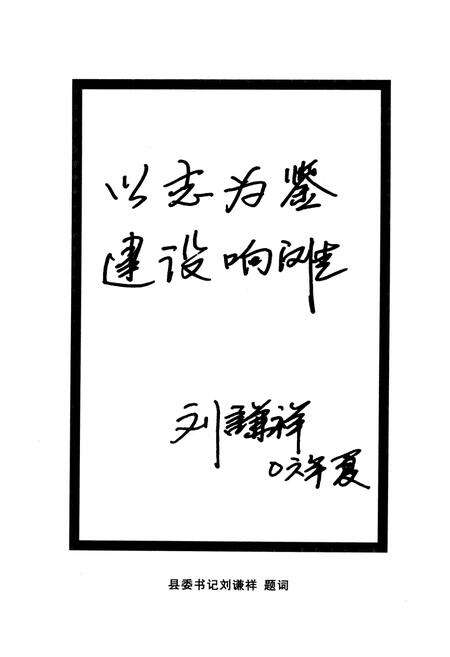 以志为鉴
建设响滩
刘谦祥
〇六年夏
县委书记刘谦祥 题词